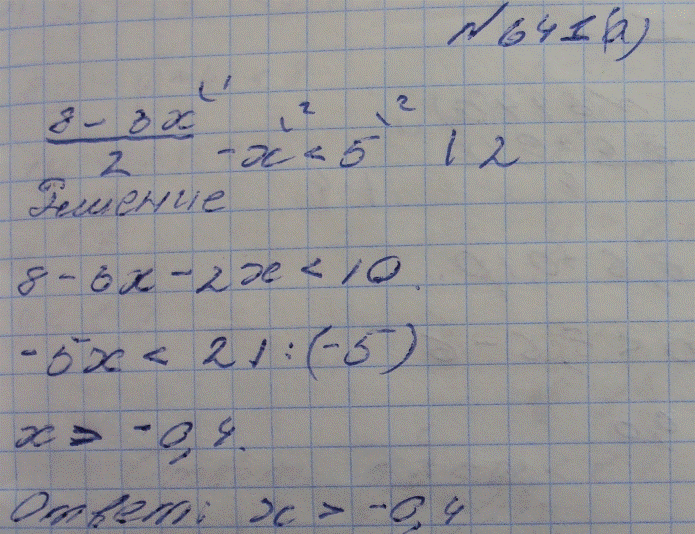 №641(а)
(8-3x)/2 \1 -x \2 < 5 \2 | 2
Решение
8-3x-2x<10.
-5x < 2 | :(-5)
x > -0,4.
Ответ: x > -0,4